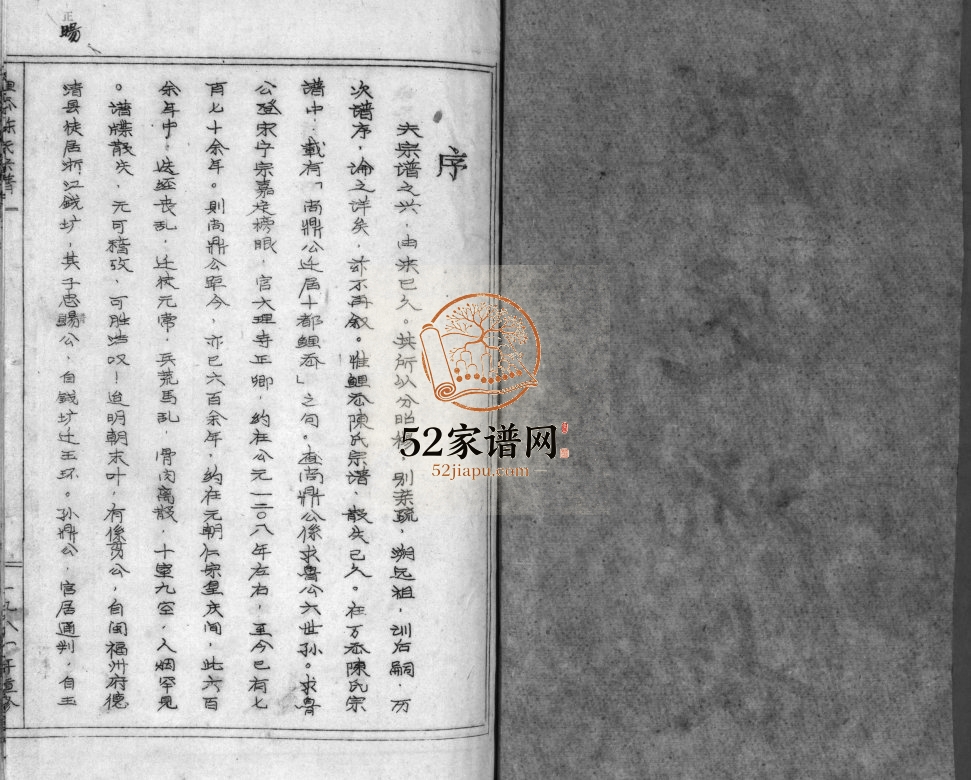 序
夫宗谱之兴，由来已久。其所以分昭穆，别亲疏，溯远祖，训后嗣，万
次谱序，论之详矣，亦不再叙。惟鲤岙陳氏宗谱，散失已久。在万岙陳氏宗
谱中，载有「尚鼎公迁居十都鲤岙」之句。查尚鼎公係求鲁公六世孙。求鲁
公登宋宁宗嘉定榜眼，官大理寺正卿，约在公元一二〇八年左右，至今已有七
百七十余年。则尚鼎公距今，亦已六百余年，约在元朝仁宗皇庆间，此六百
余年中，迭经丧乱，迁徙无常，兵荒马乱，骨肉离散，十室九空，人烟罕见
。谱牒散失，无可稽攷，可胜浩叹！迨明朝末叶，有係贤公，自闽福州府德
清县徒居浙江钱圹，其子志賜公，自钱圹迁玉环。孙鼎公，官居通判，自玉
正
暘
陈氏宗谱
一九八一年重修
52家谱网
52jiapu.com